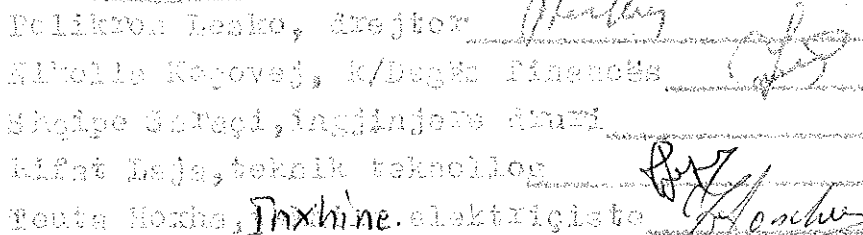 Polikron Lesko, drejtor
Nikolla Koçovej, K/Degës financës
Shqipe Saraçi, ingjinjere druri
Lifat Leja, teknik teknollog
Teuta Hoxha, Inxhine. elektriçiste